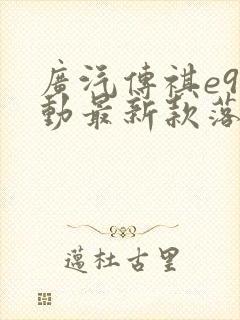 廣汽傳祺e9
動最新款落
邁杜古里